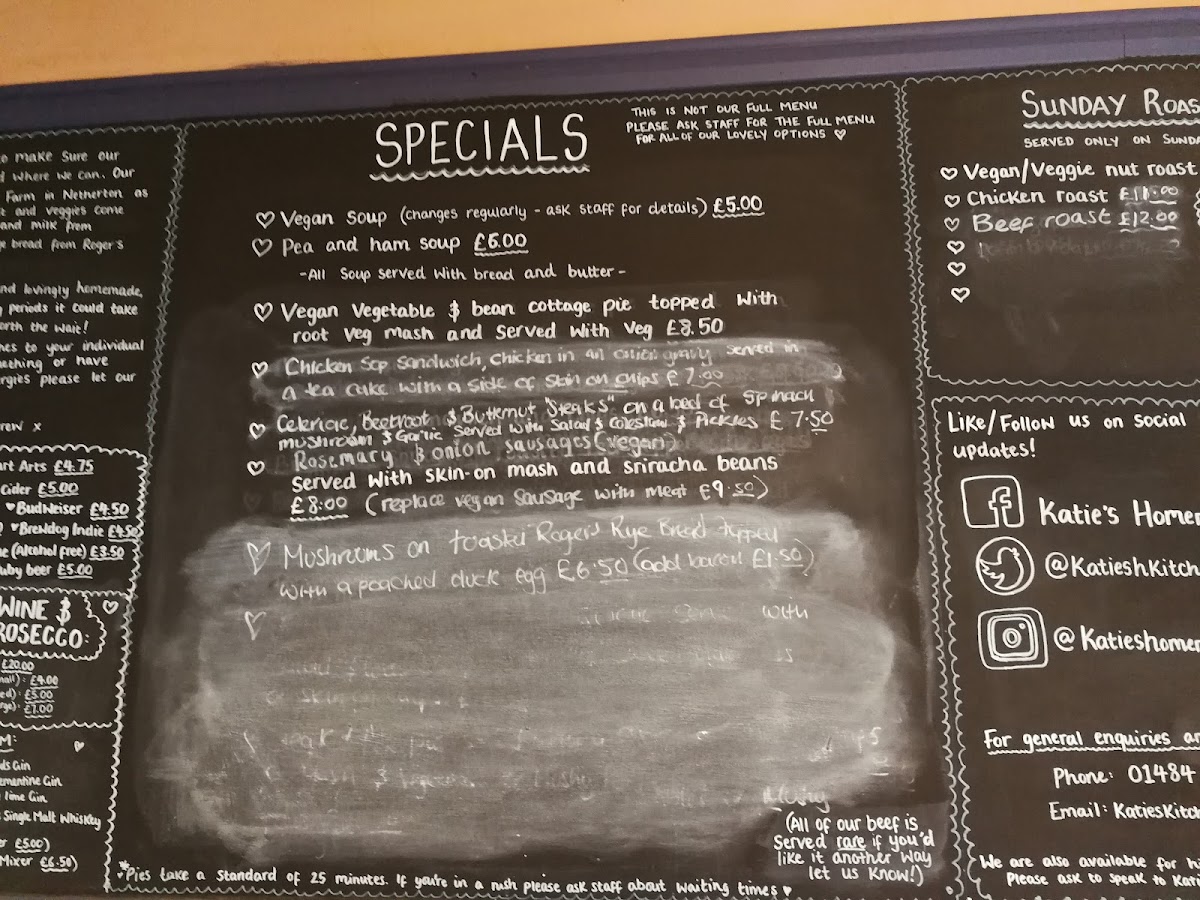 to make sure our
d where we can. Our
Farm in Netherton as
t and veggies come
and milk from
ge bread from Roger's
nd lovingly homemade,
y periods it could take
orth the wait!
nes to your individual
mething or have
rgies please let our
rew x
art Arts £4.75
Cider £5.00
♥Budweiser £4.50
♥Brewdog Indie £4.50
e (Alcohol free) £3.50
uby beer £5.00
WINE &
ROSECCO:
£20.00
mall): £4.00
ed): £5.00
rge): £7.00
M:
ds Gin
ementine Gin
time Gin
Single Malt Whiskey
er £5.00)
Mixer £6.50)
SPECIALS
THIS IS NOT OUR FULL MENU
PLEASE ASK STAFF FOR THE FULL MENU
FOR ALL OF OUR LOVELY OPTIONS ♡
♡ Vegan Soup (changes regularly - ask staff for details) £5.00
♡ Pea and ham soup £6.00
-All Soup served with bread and butter-
♡ Vegan Vegetable & bean cottage pie topped with
root veg mash and served with veg £8.50
♡ Chicken Sop Sandwich, Chicken in an onion gravy served in
a tea cake with a side of skin on chips £7.00
♡ Celeriac, Beetroot & Butternut "Steaks" on a bed of spinach
mushroom & Garlic served with Salad & Coleslaw & Pickles £7.50
♡ Rosemary & onion sausages (vegan)
served with skin-on mash and sriracha beans
£8.00 (replace vegan sausage with meat £9.50)
♡ Mushrooms on toasted Rogers Rye Bread topped
with a poached duck egg £6.50 (add bacon £1.50)
♡ with
is
(All of our beef is
served rare if you'd
like it another way
let us know!)
*Pies take a standard of 25 minutes. If you're in a rush please ask staff about waiting times ♥
SUNDAY ROAS
SERVED ONLY ON SUNDA
♡ Vegan/Veggie nut roast
♡ Chicken roast £11.00
♡ Beef roast £12.00
♡
♡
♡
Like/Follow us on social
updates!
Katie's Homem
@KatieshKitch
@Katieshomem
For general enquiries an
Phone: 01484
Email: KatiesKitch
We are also available for hi
Please ask to speak to Kati